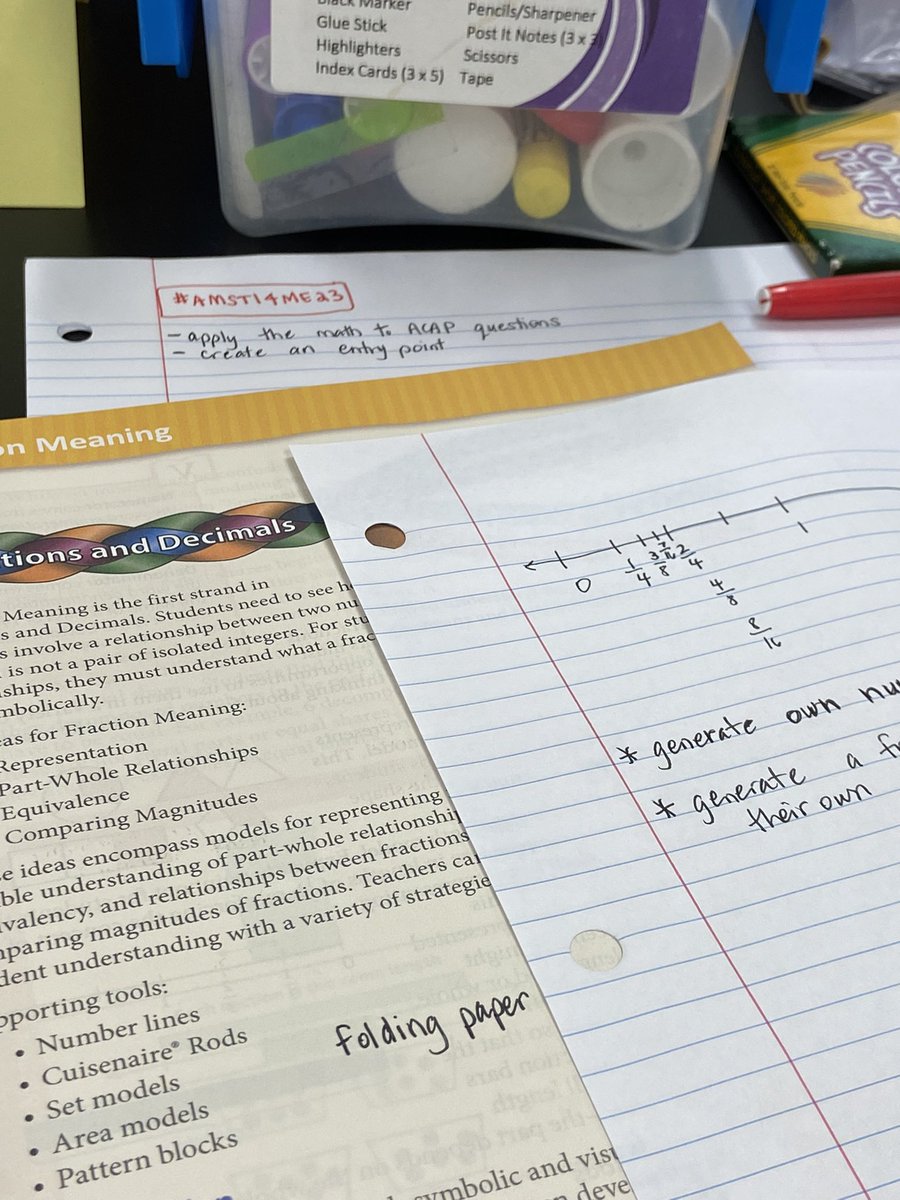 Marker Pencils/Sharpener
Glue Stick Post It Notes (3 x
Highlighters Scissors
Index Cards (3 x 5) Tape
COLO
PENCILS
#AMSTI4ME23
- apply the math to ACAP questions
- create an entry point
on Meaning
tions and Decimals
Meaning is the first strand in
s and Decimals. Students need to see h
s involve a relationship between two nu
is not a pair of isolated integers. For stu
nships, they must understand what a frac
mbolically.
eas for Fraction Meaning:
Representation
Part-Whole Relationships
Equivalence
Comparing Magnitudes
e ideas encompass models for representing
ble understanding of part-whole relationship
ivalency, and relationships between fractions
mparing magnitudes of fractions. Teachers ca
dent understanding with a variety of strategie
pporting tools:
• Number lines
• Cuisenaire® Rods
• Set models
• Area models
• Pattern blocks
folding paper
symbolic and visu
deve
0 1/4 3/8 7/16 2/4 1
4/8
8/16
* generate own nu
* generate a fr
their own